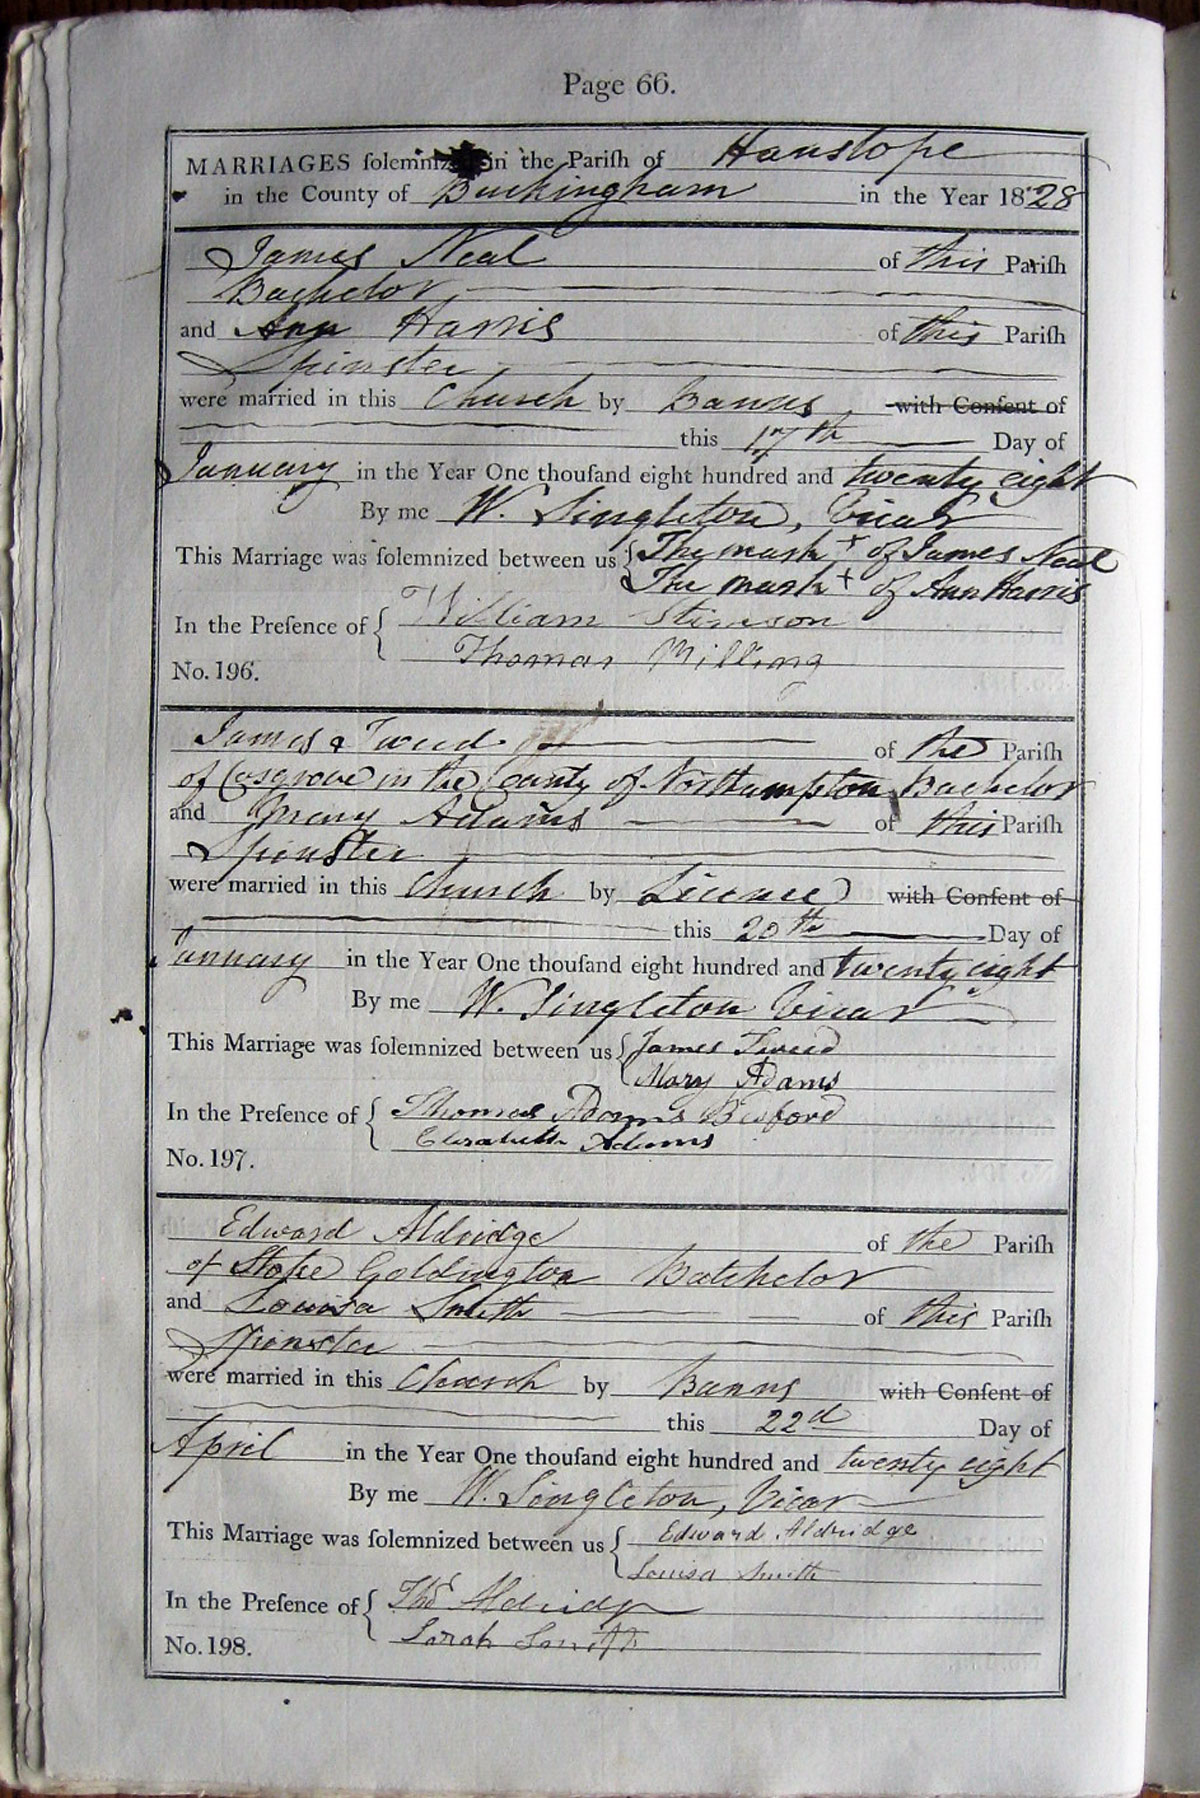 Page 66.
MARRIAGES ſolemnized in the Pariſh of Hanslope
in the County of Buckingham in the Year 1828
James Neal of this Pariſh
Bachelor,
and Ann Harris of this Pariſh
Spinster,
were married in this Church by Banns, with Conſent of
this 17th Day of
January in the Year One thouſand eight hundred and twenty eight
By me W. Singleton, Vicar
This Marriage was ſolemnized between us The mark + of James Neal
The mark + of Ann Harris
In the Preſence of William Stimson
Thomas Milling
No. 196.
James Tweed of the Pariſh
of Cosgrove in the County of Northampton Bachelor
and Mary Adams of this Pariſh
Spinster
were married in this Church by Licence with Conſent of
this 20th Day of
January in the Year One thouſand eight hundred and twenty eight
By me W. Singleton Vicar
This Marriage was ſolemnized between us James Tweed
Mary Adams
In the Preſence of Thomas Adams
Elizabeth Adams
No. 197.
Edward Aldridge of the Pariſh
of Stoke Goldington Batchelor
and Louisa Smith of this Pariſh
Spinster
were married in this Church by Banns with Conſent of
this 22d Day of
April in the Year One thouſand eight hundred and twenty eight
By me W. Singleton, Vicar
This Marriage was ſolemnized between us Edward Aldridge
Louisa Smith
In the Preſence of Thos Aldridge
Sarah Smith
No. 198.